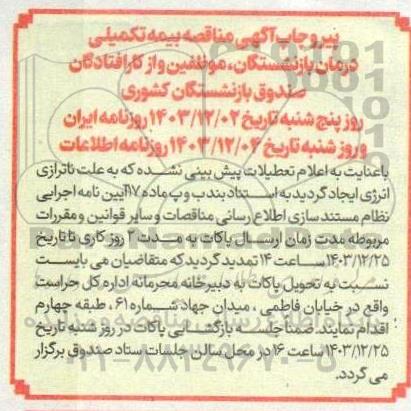 پیرو چاپ آگهی مناقصه بیمه تکمیلی
درمان بازنشستگان، موظفین و از کارافتادگان
صندوق بازنشستگان کشوری
روز پنج شنبه تاریخ ۱۴۰۳/۱۲/۰۲ روزنامه ایران
و روز شنبه تاریخ ۱۴۰۳/۱۲/۰۴ روزنامه اطلاعات
با عنایت به اعلام تعطیلات پیش بینی نشده که به علت ناترازی
انرژی ایجاد گردید به استناد بند ب و پ ماده ۱۷ آیین نامه اجرایی
نظام مستندسازی اطلاع رسانی مناقصات و سایر قوانین و مقررات
مربوطه مدت زمان ارسال پاکات به مدت ۲ روز کاری تا تاریخ
۱۴۰۳/۱۲/۲۵ ساعت ۱۴ تمدید گردید که متقاضیان می بایست
نسبت به تحویل پاکات به دبیرخانه محرمانه اداره کل حراست
واقع در خیابان فاطمی ، میدان جهاد شماره ۶۱ ، طبقه چهارم
اقدام نمایند. ضمناً جلسه بازگشایی پاکات در روز شنبه تاریخ
۱۴۰۳/۱۲/۲۵ ساعت ۱۶ در محل سالن جلسات ستاد صندوق برگزار
می گردد.
۰۲۱-۸۸۳۴۹۶۷۰-۵